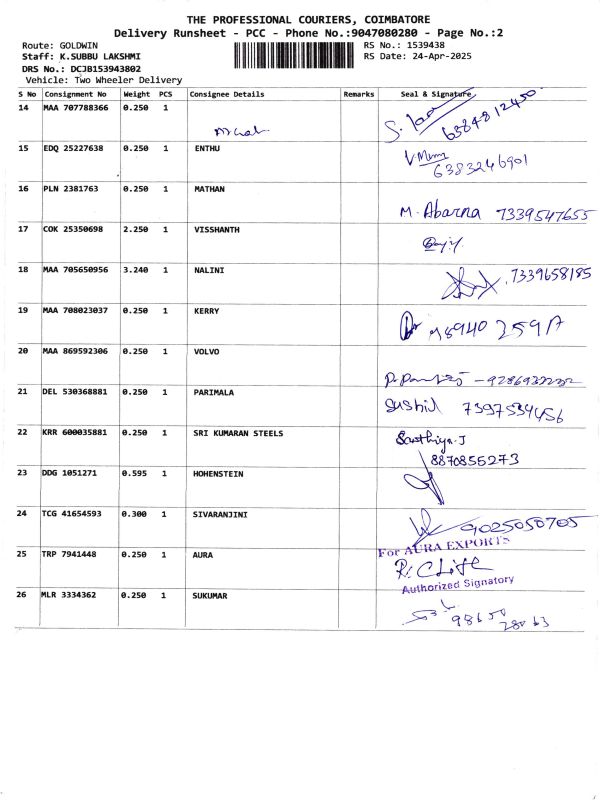 THE PROFESSIONAL COURIERS, COIMBATORE
Delivery Runsheet - PCC - Phone No.:9047080280 - Page No.:2
Route: GOLDWIN RS No.: 1539438
Staff: K.SUBBU LAKSHMI RS Date: 24-Apr-2025
DRS No.: DCJB153943802
Vehicle: Two Wheeler Delivery
S No Consignment No Weight PCS Consignee Details Remarks Seal & Signature
14 MAA 707788366 0.250 1 6384812450
15 EDQ 25227638 0.250 1 ENTHU 6383246901
16 PLN 2381763 0.250 1 MATHAN
M. Abarna 7339547655
17 COK 25350698 2.250 1 VISSHANTH
18 MAA 705650956 3.240 1 NALINI 7339658185
19 MAA 708023037 0.250 1 KERRY
20 MAA 869592306 0.250 1 VOLVO
21 DEL 530368881 0.250 1 PARIMALA
Sushil 7397534456
22 KRR 600035881 0.250 1 SRI KUMARAN STEELS
8870855273
23 DDG 1051271 0.595 1 HOHENSTEIN
24 TCG 41654593 0.300 1 SIVARANJINI
9025050705
For AURA EXPORTS
25 TRP 7941448 0.250 1 AURA
Authorized Signatory
26 MLR 3334362 0.250 1 SUKUMAR